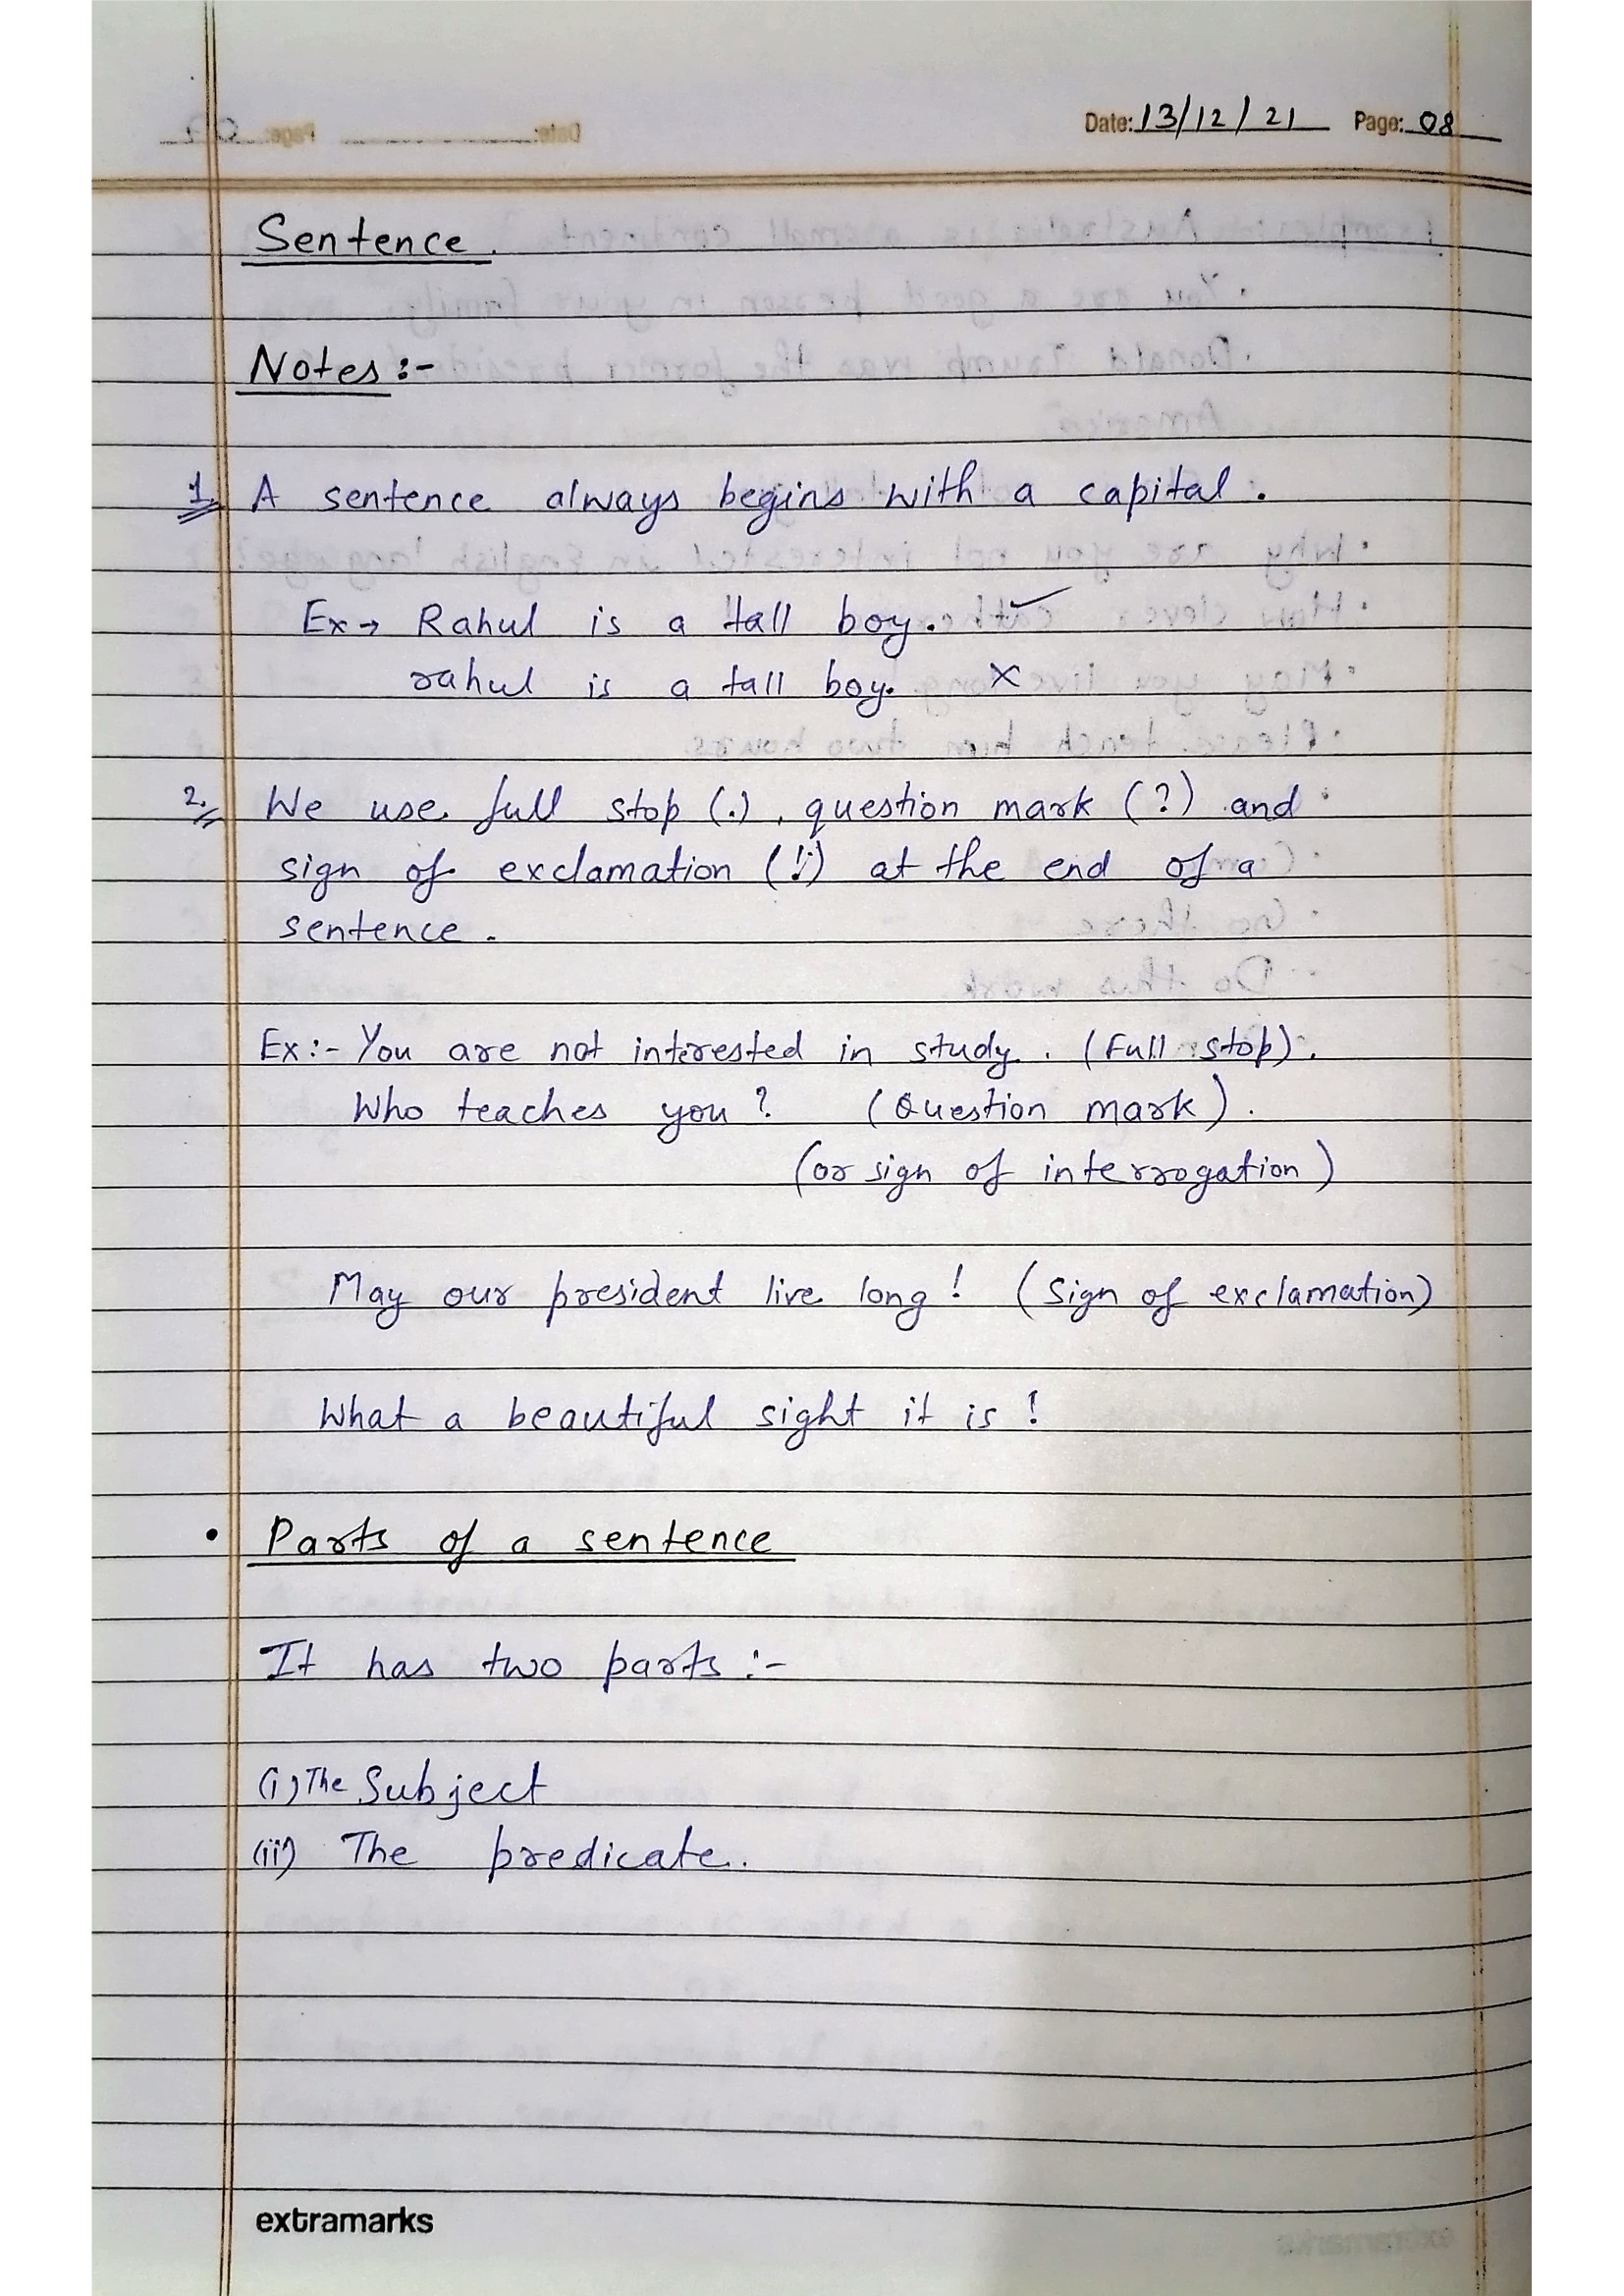 Date: 13/12/21 Page: 08
Sentence.
Notes :-
1. A sentence always begins with a capital.
Ex → Rahul is a tall boy. ✓
rahul is a tall boy. ×
2. We use full stop (.), question mark (?) and
sign of exclamation (!) at the end of a
sentence.
Ex :- You are not interested in study. (Full stop).
Who teaches you? (Question mark).
(or sign of interrogation)
May our president live long! (Sign of exclamation)
What a beautiful sight it is!
• Parts of a sentence
It has two parts :-
(i) The Subject
(ii) The predicate.
extramarks